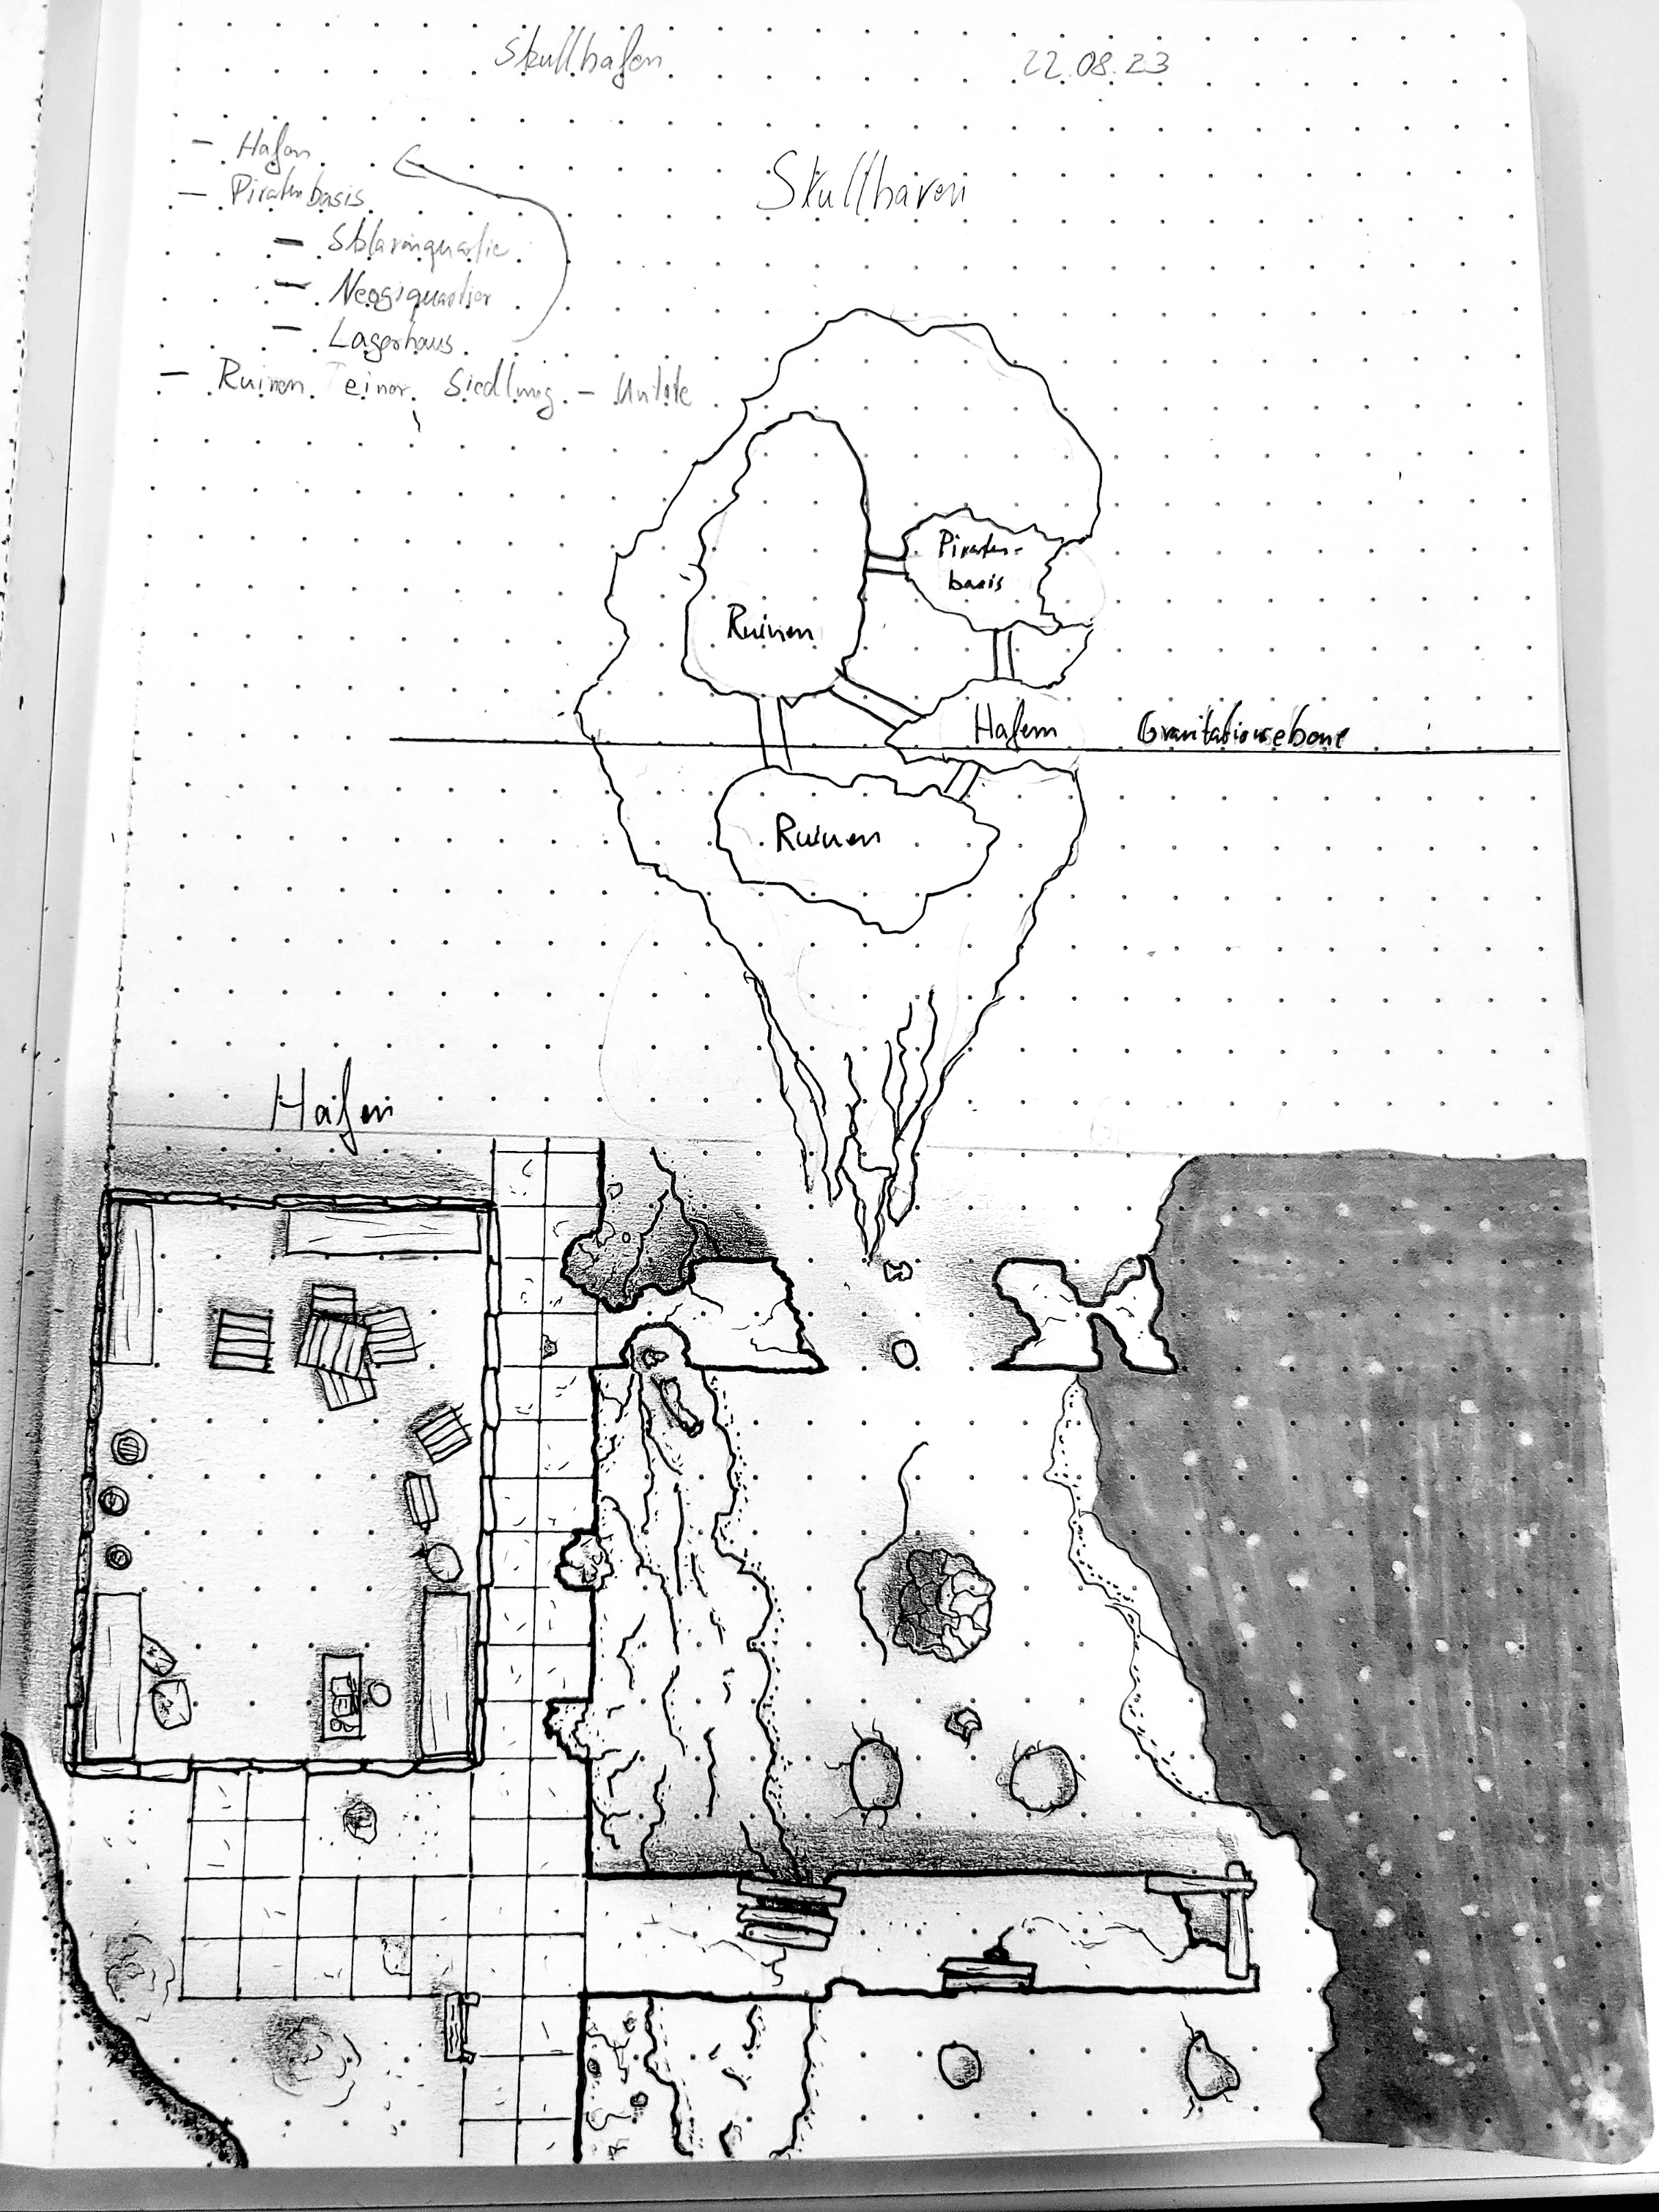 Skullhafen 22.08.23
- Hafen
- Piratenbasis
- Sklavenquartier
- Neogiquartier
- Lagerhaus
- Ruinen einer Siedlung - Untote
Skullhaven
Piraten-
basis
Ruinen
Hafen Gravitationsebene
Ruinen
Hafen